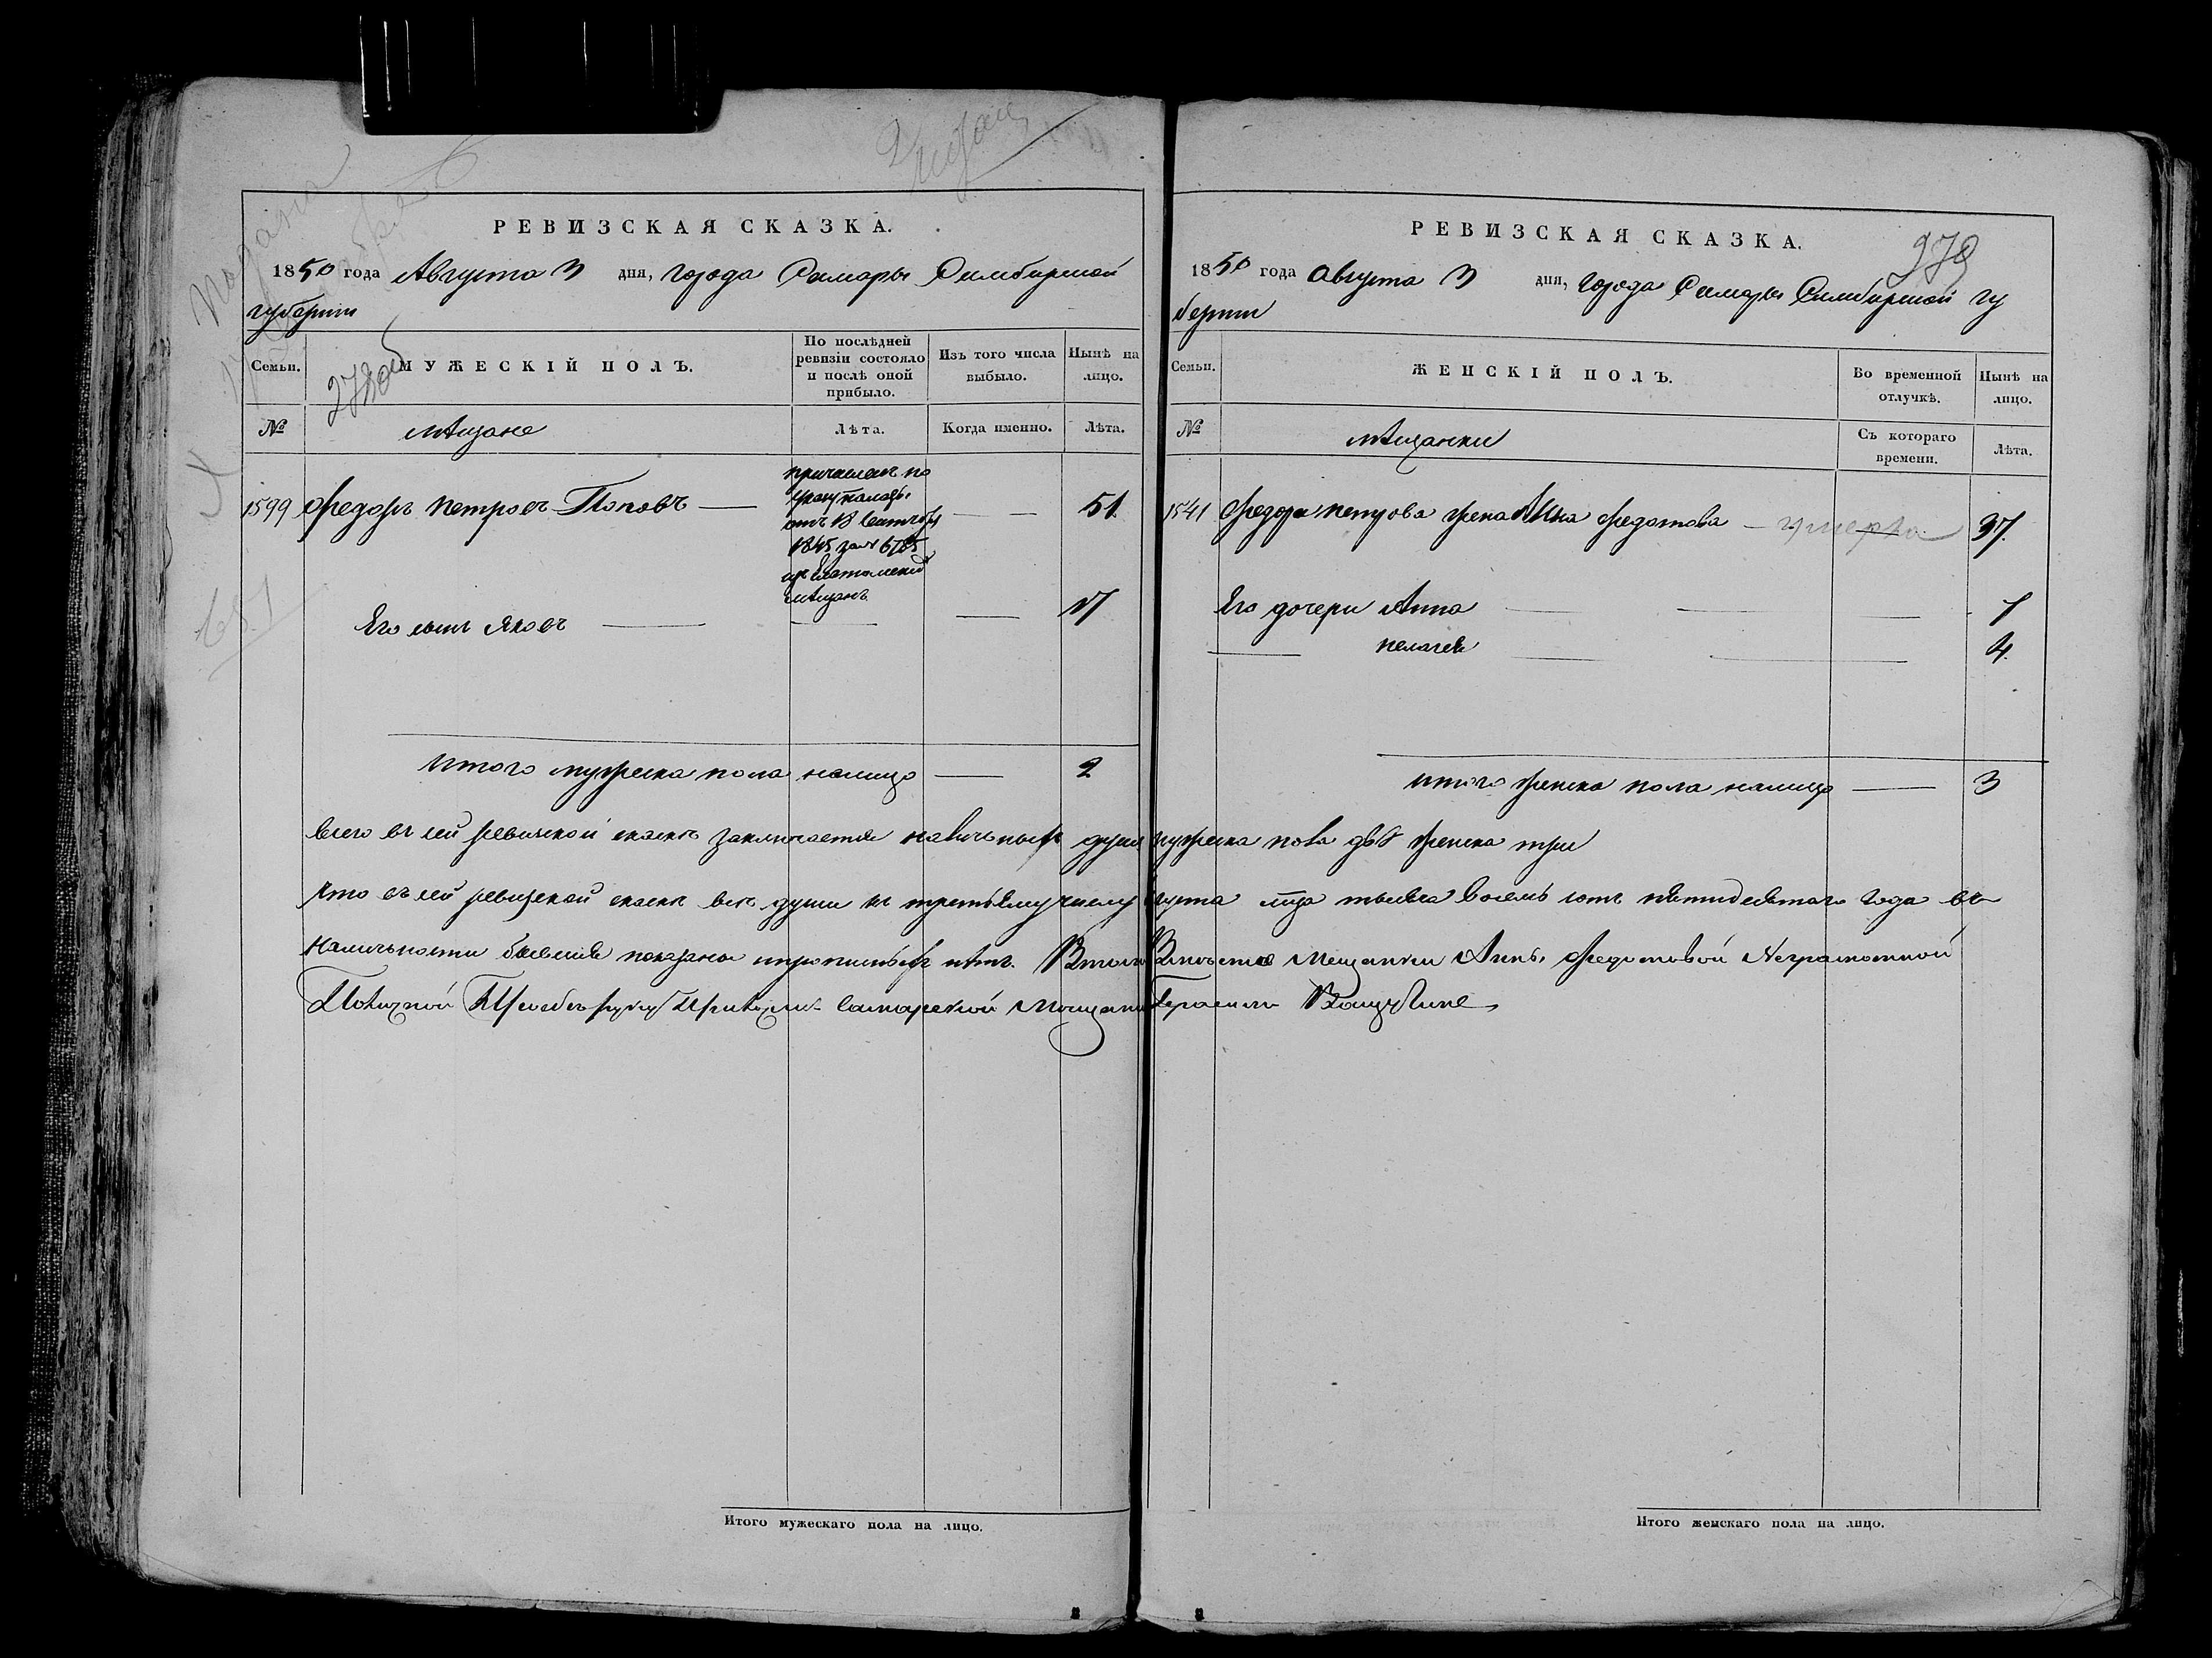 РЕВИЗСКАЯ СКАЗКА.
1850 года Августа 3 дня, города Самары Симбирской
губернии
Семьи.
МУЖЕСКІЙ ПОЛЪ.
По послѣдней
ревизіи состояло
и послѣ оной
прибыло.
Изъ того числа
выбыло.
Нынѣ на
лицо.
№
мѣщане
Лѣта.
Когда именно.
Лѣта.
1599 Федоръ Петровъ Поповъ — 51
причисленъ по
указу палаты
отъ 18 Сентября
1845 за №
изъ
мѣщанъ
Его сынъ Яковъ — 17
Итого мужеска пола налицо — 2
РЕВИЗСКАЯ СКАЗКА.
1850 года Августа 3 дня, города Самары Симбирской гу
берніи
Семьи.
ЖЕНСКІЙ ПОЛЪ.
Во временной
отлучкѣ.
Нынѣ на
лицо.
№
мѣщанки
Съ котораго
времени.
Лѣта.
1541 Федора Петрова жена Анна Федотова — умерла 37
Его дочери Анна
Пелагея 4
итого женска пола налицо — 3
всего въ сей ревизской сказке заключается наличныхъ душъ мужеска пола двѣ женска три
что въ сей ревизской сказке все души къ третьему числу Августа тысяча восемь сотъ пятидесятаго года въ
наличности бывшие показаны и прописныхъ нѣтъ. Вместо Мещанки Анны Федотовой Неграмотной
Самарской Мещанин Герасимъ
Итого мужескаго пола на лицо.
Итого женскаго пола на лицо.